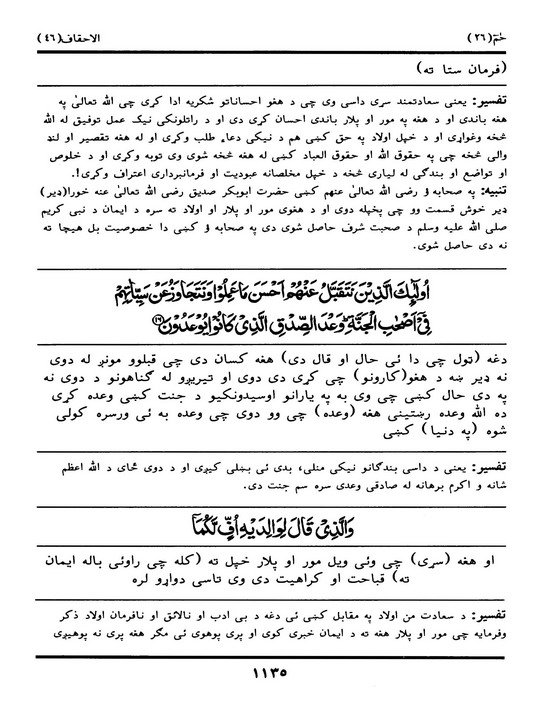 حٰمٓ (٢٦)
الاحقاف (٤٦)
(فرمان ستا ته)
تفسیر: یعنی سعادتمند سړی داسی وی چی د هغو احساناتو شکریه ادا کړی چی الله تعالیٰ په
هغه باندی او د هغه په مور او پلار باندی احسان کړی دی او د راتلونکی نیک عمل توفیق له الله
څخه وغواړی او د خپل اولاد په حق کښی هم د نیکی دعاء طلب وکړی او له هغه تقصیر او لنډ
والی څخه چی په حقوق الله او حقوق العباد کښی له هغه څخه شوی وی توبه وکړی او د خلوص
او تواضع او بندگی له لیاری څخه د خپل مخلصانه عبودیت او فرمانبرداری اعتراف وکړی!.
تنبیه: په صحابه ؤ رضی الله تعالیٰ عنهم کښی حضرت ابوبکر صدیق رضی الله تعالیٰ عنه خورا(ډیر)
ډیر خوش قسمت وو چی پخپله دوی او د هغوی مور او پلار او اولاد ته سره د ایمان د نبی کریم
صلی الله علیه وسلم د صحبت شرف حاصل شوی دی په صحابه ؤ کښی دا خصوصیت بل هیچا ته
نه دی حاصل شوی.
اُولٰٓئِكَ الَّذِيْنَ نَتَقَبَّلُ عَنْهُمْ اَحْسَنَ مَا عَمِلُوْا وَنَتَجَاوَزُ عَنْ سَيِّاٰتِهِمْ
فِيْٓ اَصْحٰبِ الْجَنَّةِ ۖ وَعْدَ الصِّدْقِ الَّذِيْ كَانُوْا يُوْعَدُوْنَ ﴿١٦﴾
دغه (ټول چی دا ئی حال او قال دی) هغه کسان دی چی قبلوو مونږ له دوی
نه ډیر ښه د هغو(کارونو) چی کړی دی دوی او تیریږو له گناهونو د دوی نه
په دی حال کښی چی وی به په یارانو اوسیدونکیو د جنت کښی وعده کړی
ده الله وعده رښتینی هغه (وعده) چی وو دوی چی وعده به ئی ورسره کولی
شوه (په دنیا) کښی
تفسیر: یعنی د داسی بندگانو نیکی منلی، بدی ئی بښلی کیږی او د دوی ځای د الله اعظم
شانه و اکرم برهانه له صادقی وعدی سره سم جنت دی.
وَالَّذِيْ قَالَ لِوَالِدَيْهِ اُفٍّ لَّكُمَآ
او هغه (سړی) چی وئی ویل مور او پلار خپل ته (کله چی راوئی باله ایمان
ته) قباحت او کراهیت دی وی تاسی دواړو لره
تفسیر: د سعادت من اولاد په مقابل کښی ئی دغه د بی ادب او نالائق او نافرمان اولاد ذکر
وفرمایه چی مور او پلار هغه ته د ایمان خبری کوی او پری پوهوی ئی مگر هغه پری نه پوهیږی
١١٣٥